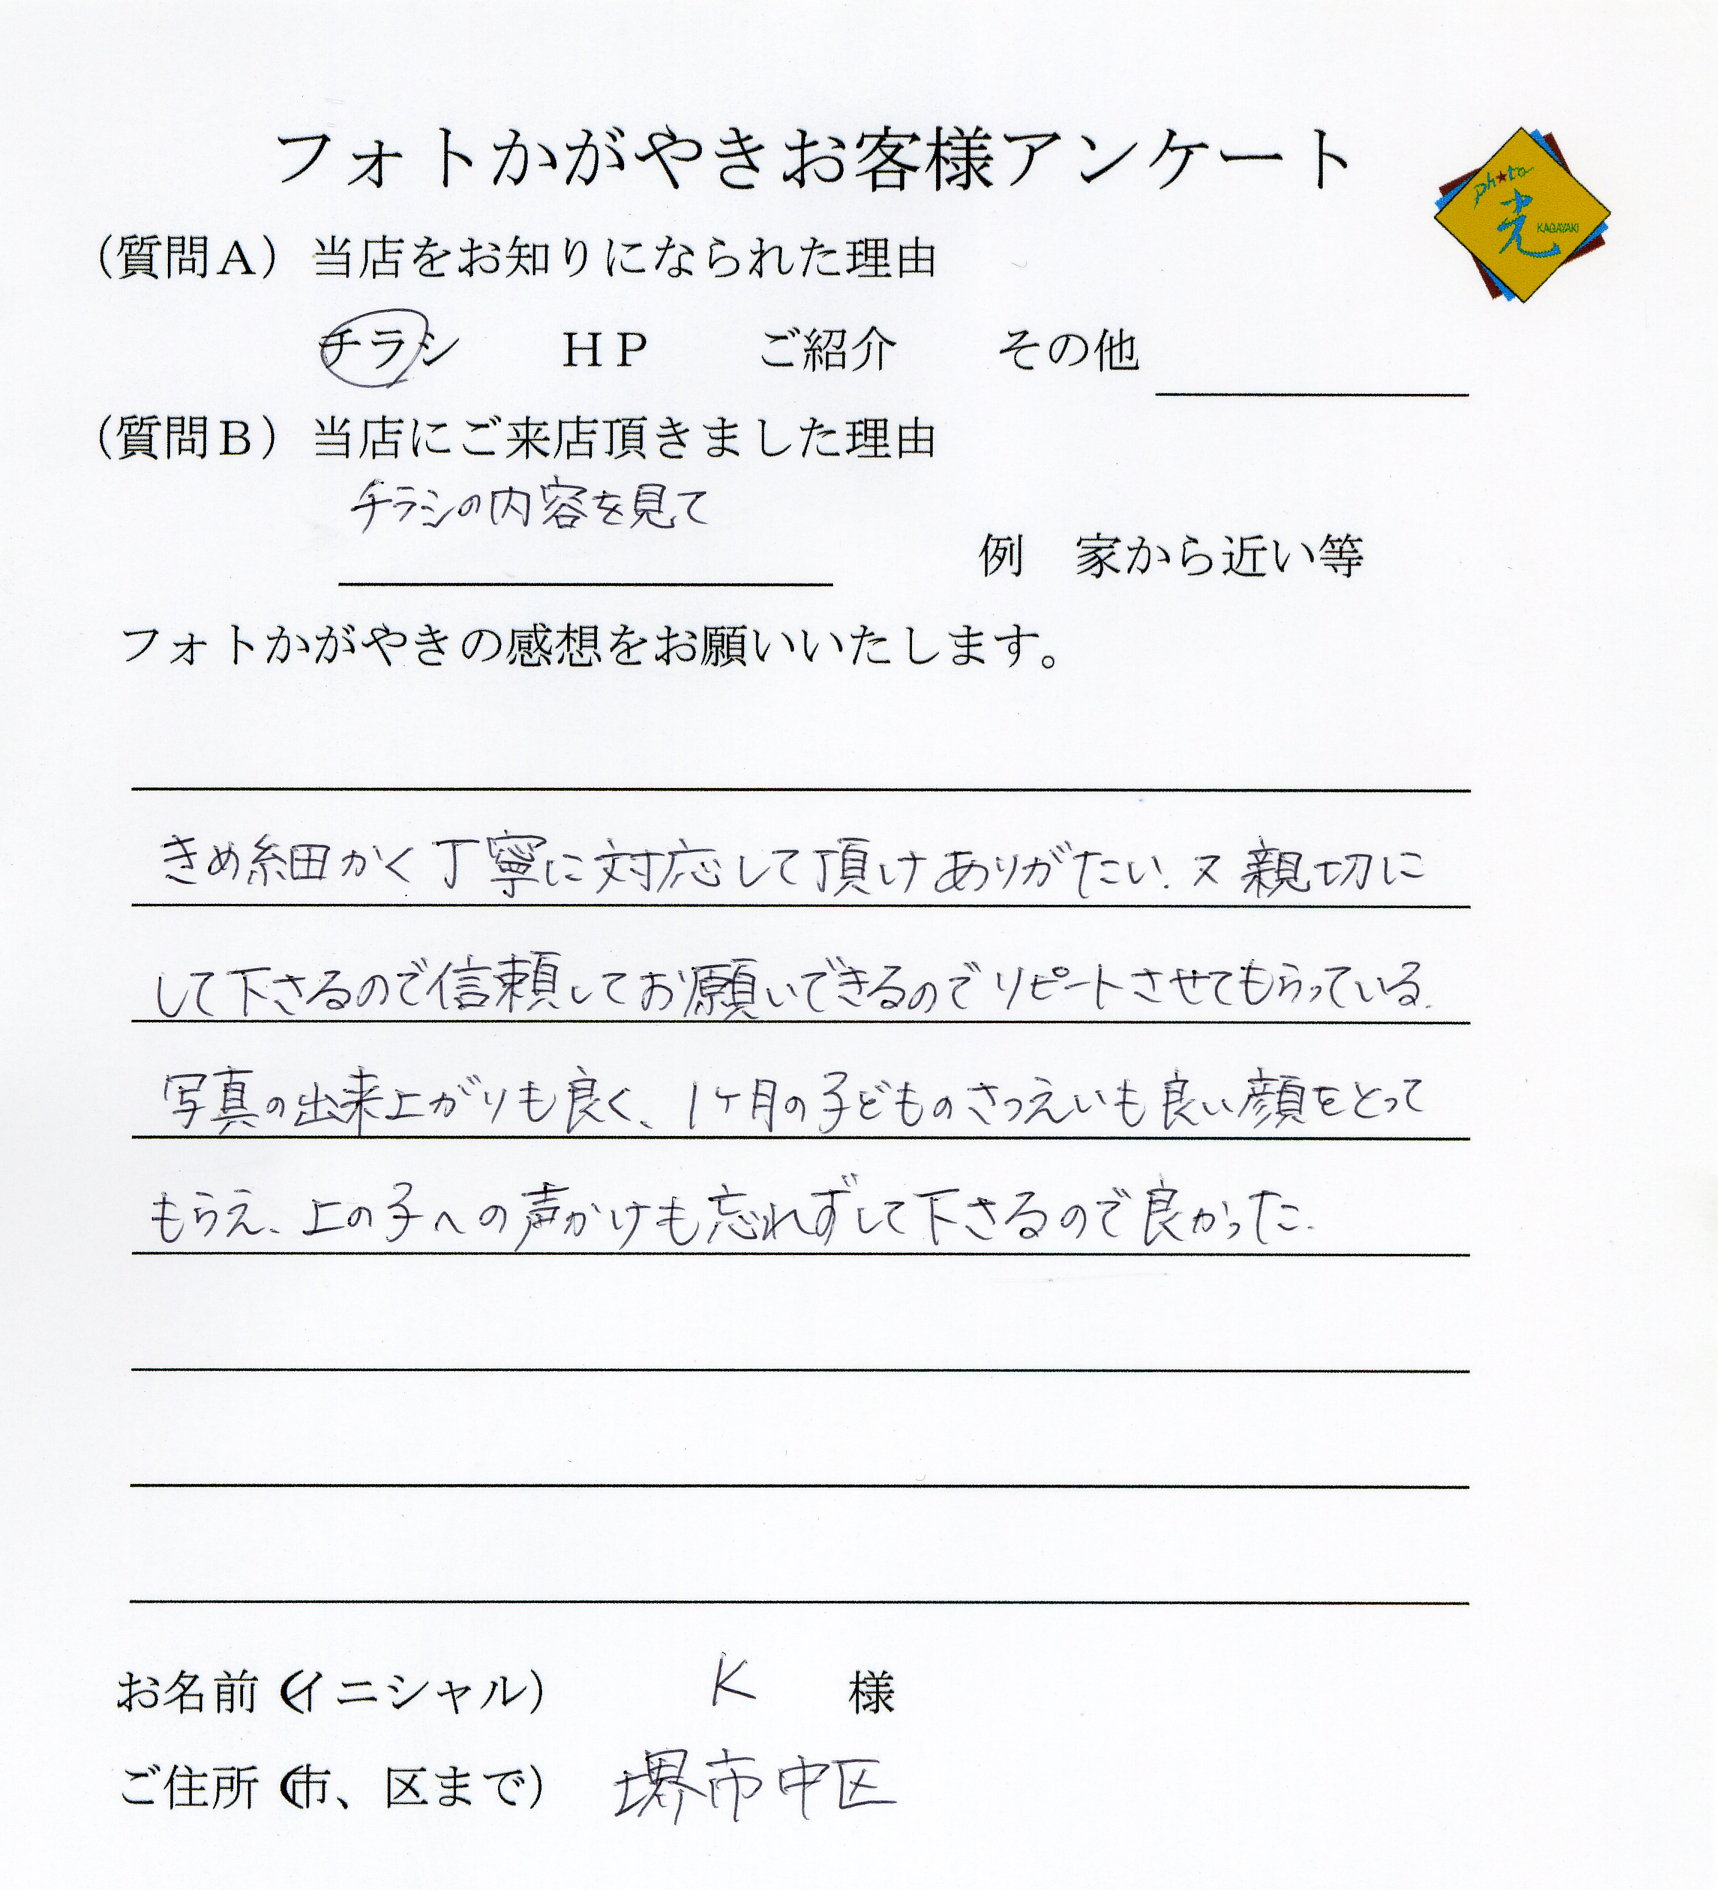 フォトかがやきお客様アンケート
photo
光
KAGAYAKI
（質問A）当店をお知りになられた理由
チラシ　HP　ご紹介　その他
（質問B）当店にご来店頂きました理由
チラシの内容を見て
例　家から近い等
フォトかがやきの感想をお願いいたします。
きめ細かく丁寧に対応して頂けありがたい。又親切に
して下さるので信頼してお願いできるのでリピートさせてもらっている。
写真の出来上がりも良く、1ヶ月の子どものさつえいも良い顔をとって
もらえ、上の子への声かけも忘れずして下さるので良かった。
お名前（イニシャル）　K　様
ご住所（市、区まで）　堺市中区